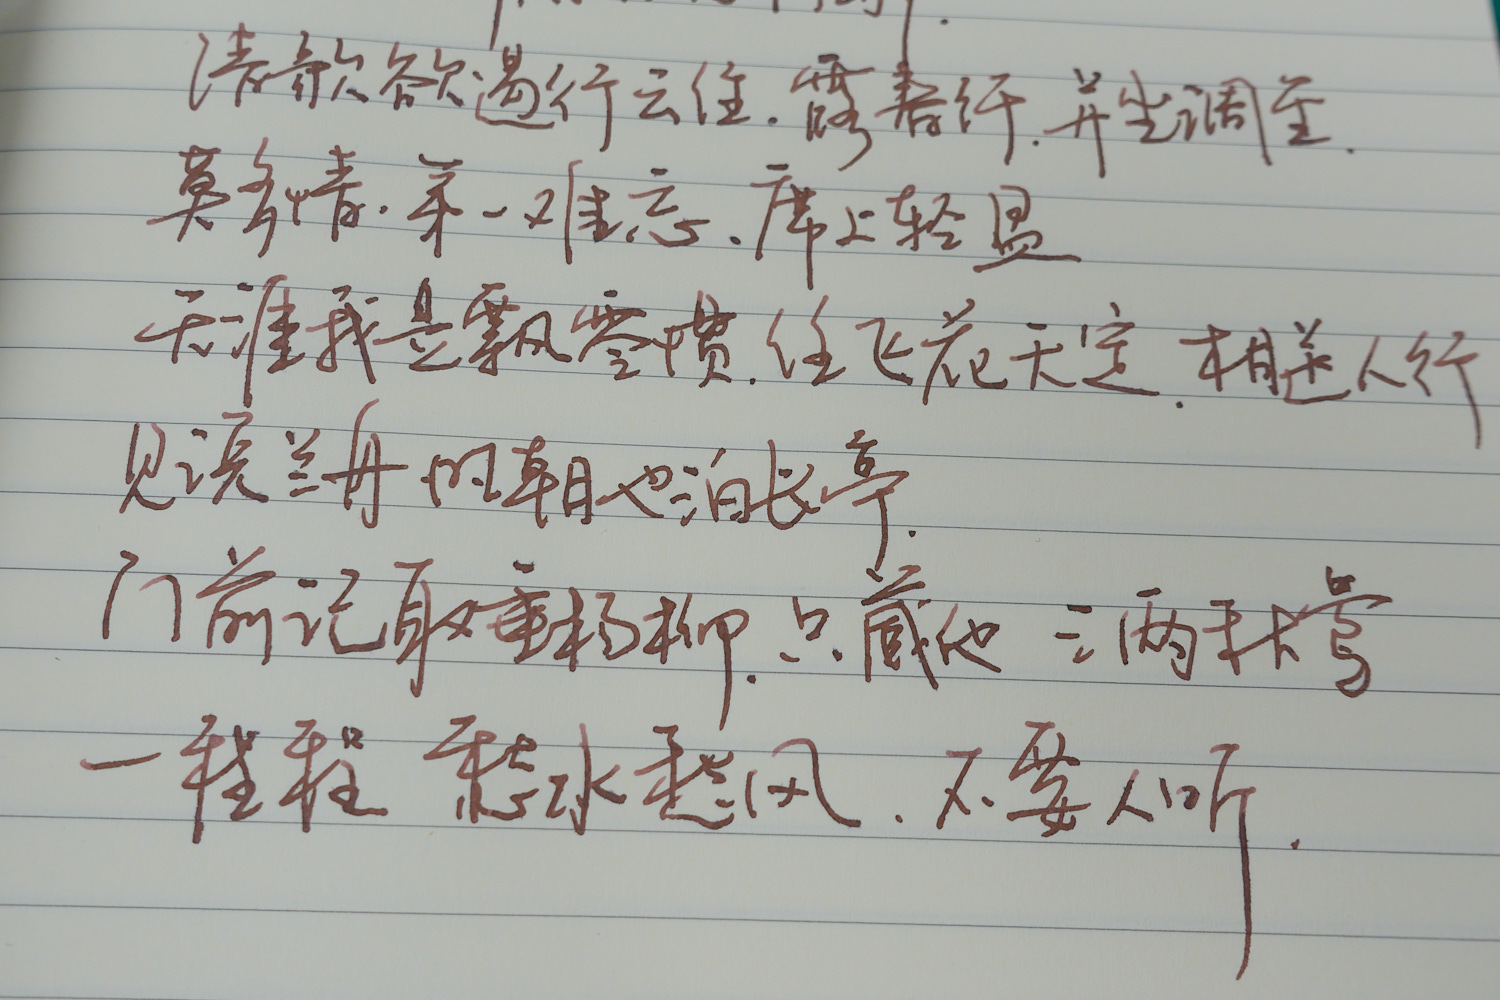 清歌欲遏行云住.露春纤.并坐调笙.
莫多情.第一难忘.席上轻盈
天涯我是飘零惯.任飞花无定.相送人行
见说兰舟 明朝也泊长亭.
门前记取垂杨柳.只藏他 三两秋莺
一程程 愁水愁风.不要人听.